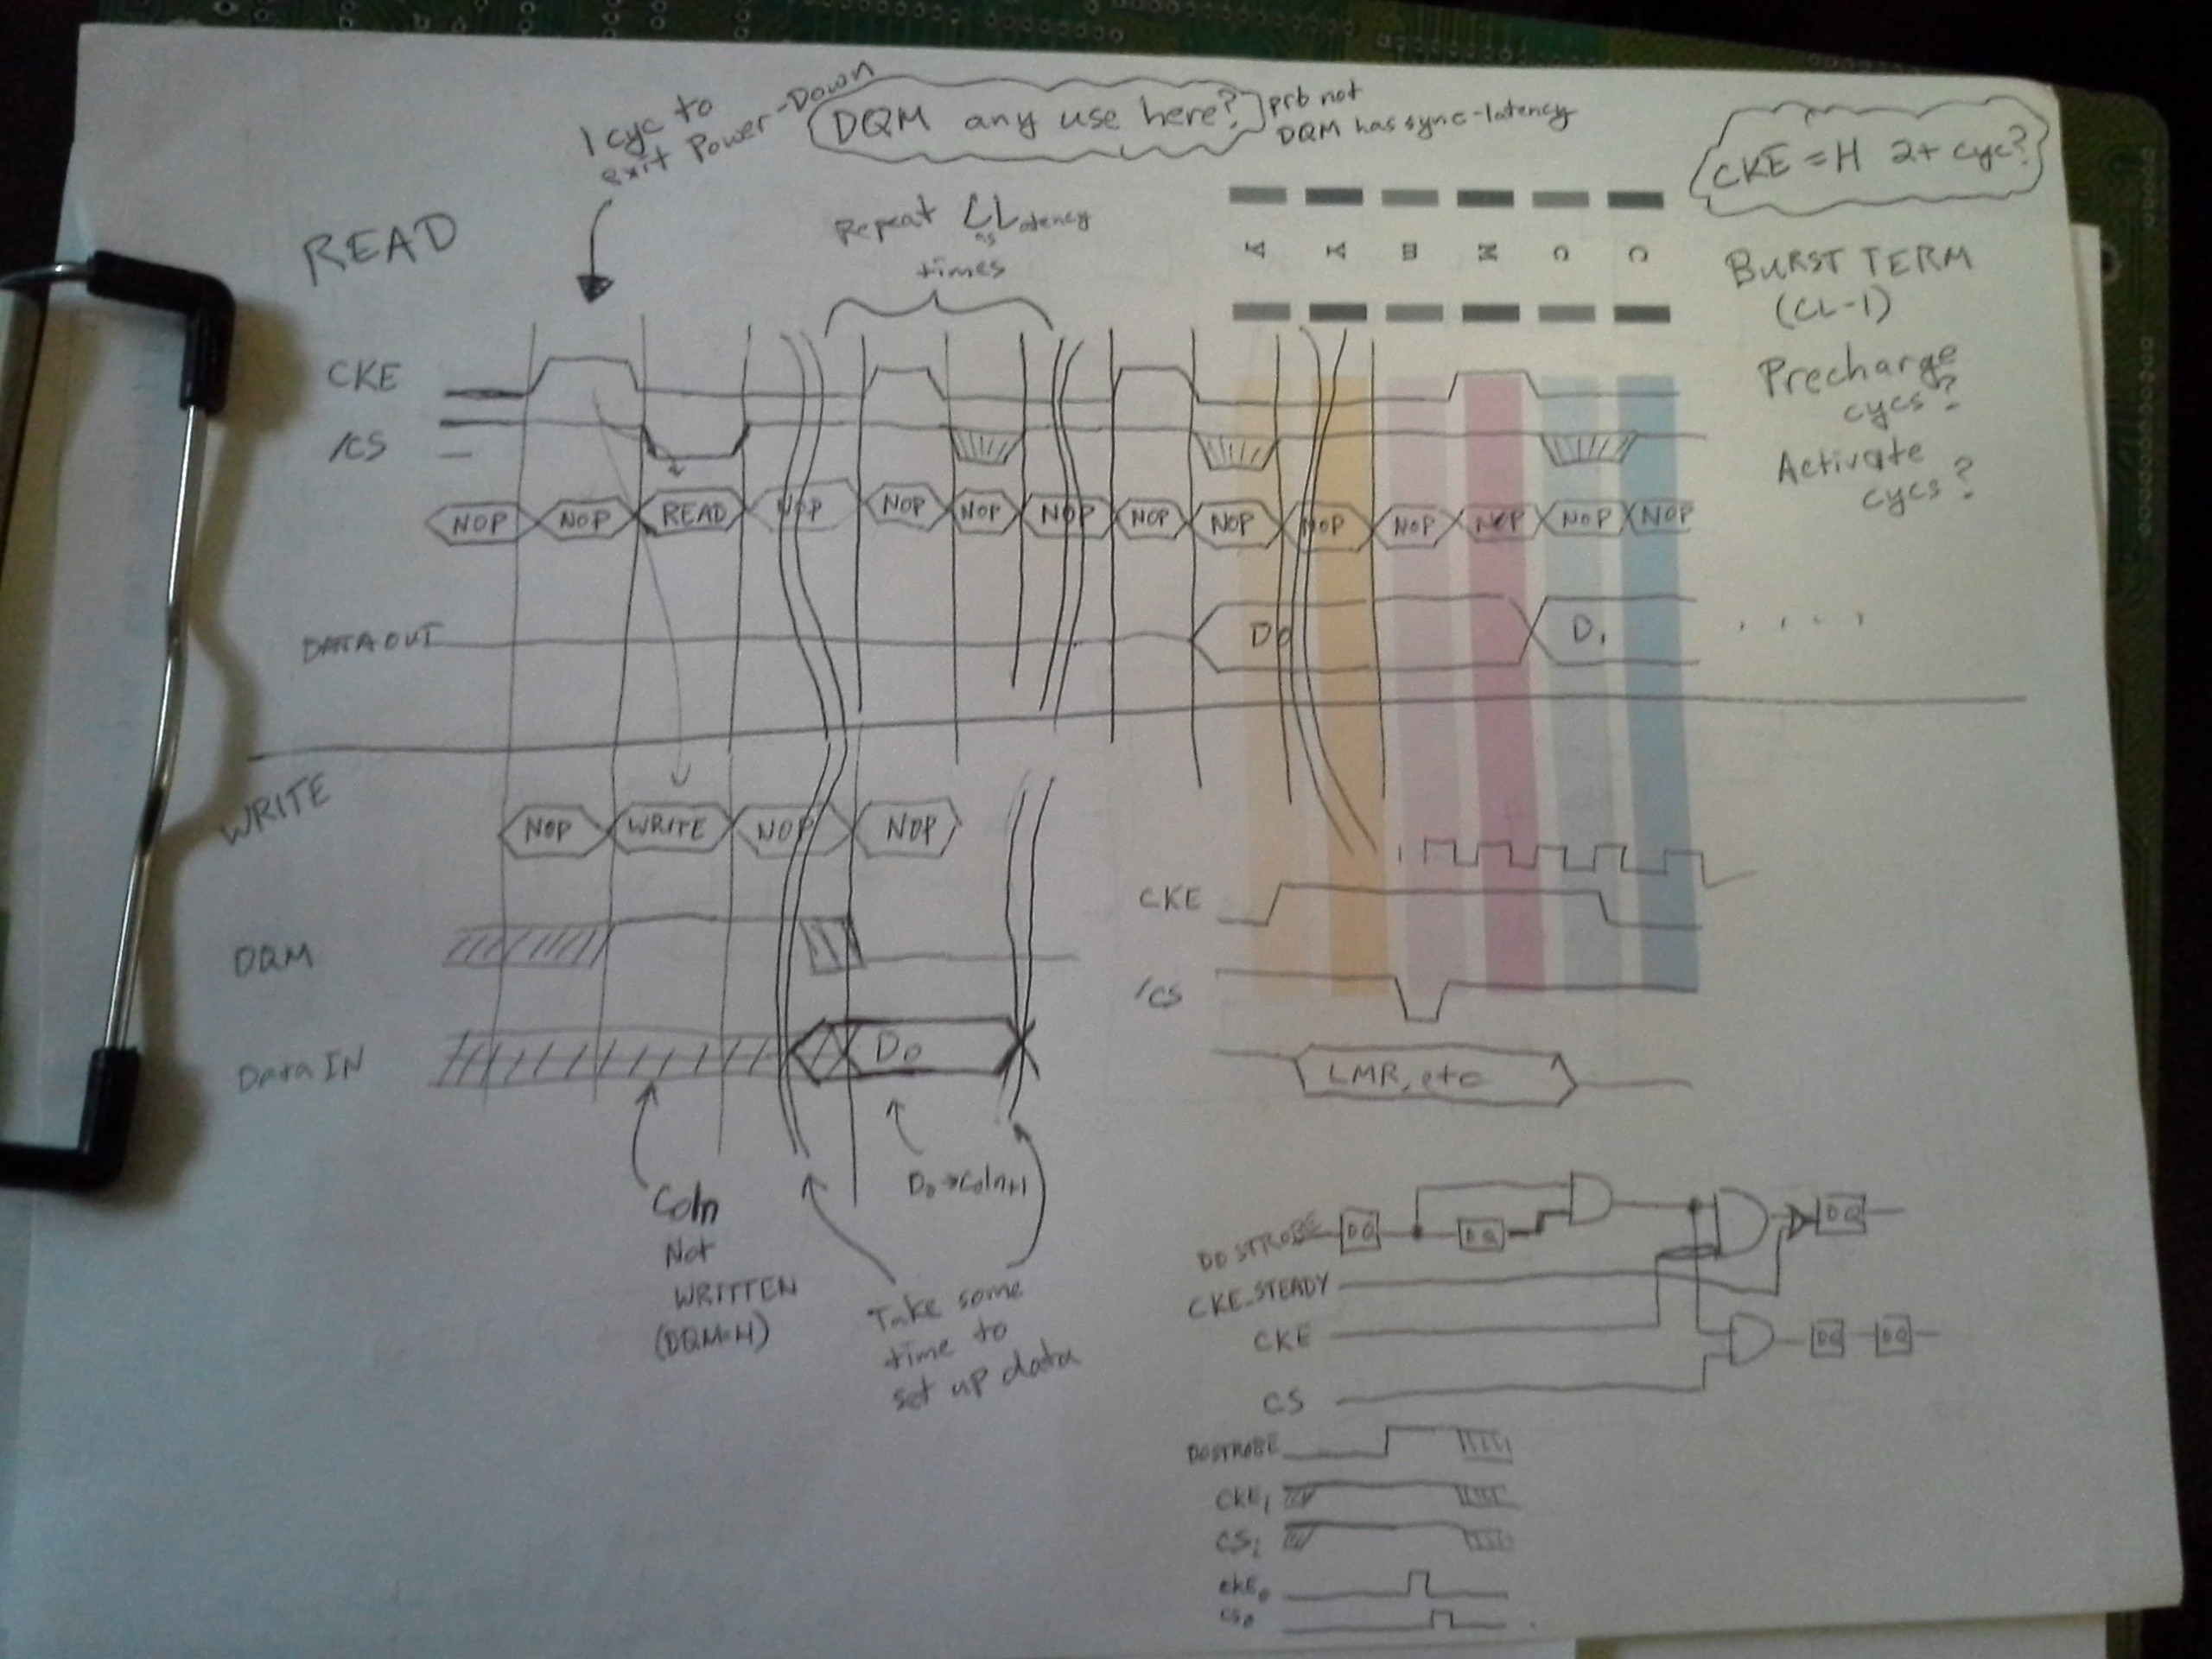 1 cyc to
exit Power-Down
DQM any use here?
prb not
DQM has sync-latency
CKE = H 2+ cyc?
READ
Repeat CLatency
times
BURST TERM
(CL-1)
Precharge
cycs?
Activate
cycs?
CKE
/CS
NOP NOP READ NOP NOP NOP NOP NOP NOP NOP NOP NOP NOP NOP
DATA OUT
D0 D1 . . . .
WRITE
NOP WRITE NOP NOP
DQM
Data IN
D0
Coln
Not
WRITTEN
(DQM=H)
D0→Coln+1
Take some
time to
set up data
CKE
/CS
LMR, etc
DOSTROBE DQ DQ DQ
CKE_STEADY
CKE
DQ DQ
CS
DOSTROBE
CKEi
CSi
CKEo
CSo